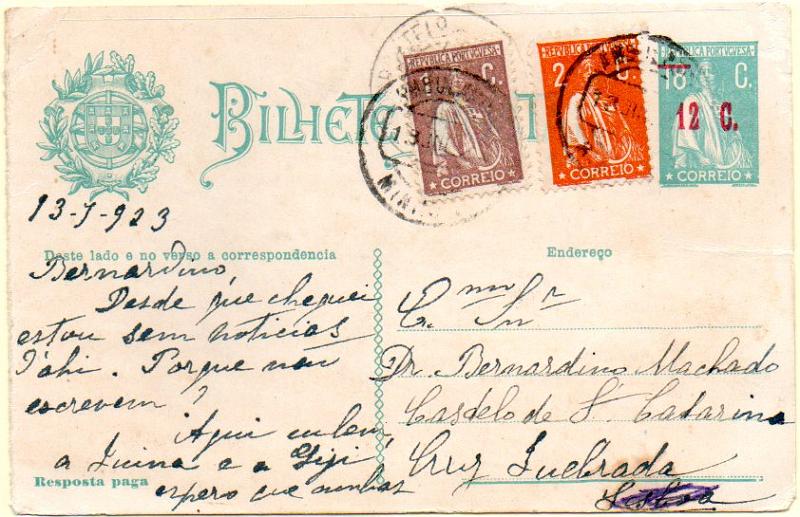 BILHETE
REPUBLICA PORTUGUESA
C.
CORREIO
REPUBLICA PORTUGUESA
2 C.
CORREIO
REPUBLICA PORTUGUESA
18 C.
12 C.
CORREIO
13-7-923
Deste lado e no verso a correspondencia
Bernardino,
Desde que cheguei
estou sem noticias
d'ahi. Porque não
escrevem?
Aqui
a e a Gigi
espero que ambas
Resposta paga
Endereço
Snr
Dr. Bernardino Machado
Castelo de Sta Catarina
Cruz Quebrada
Lisboa